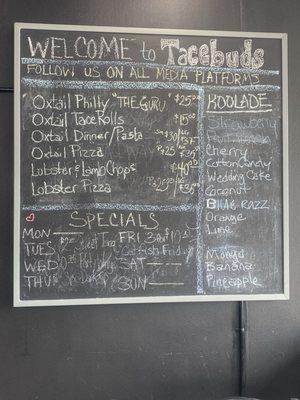 WELCOME to Tacebuds
FOLLOW US ON ALL MEDIA PLATFORMS
Oxtail Philly "THE GURU" $25
Oxtail Taco Rolls $15
Oxtail Dinner/Pasta $30
Oxtail Pizza $35
Lobster & Lamb Chops $40
Lobster Pizza $35
KOOLADE
Strawberry
Cherry
Cotton Candy
Wedding Cake
Coconut
Blue RAZZ
Orange
Lime
Mango
Banana
Pineapple
SPECIALS
MON
TUES
WED
THUR
FRI
Catfish Friday
SAT
SUN